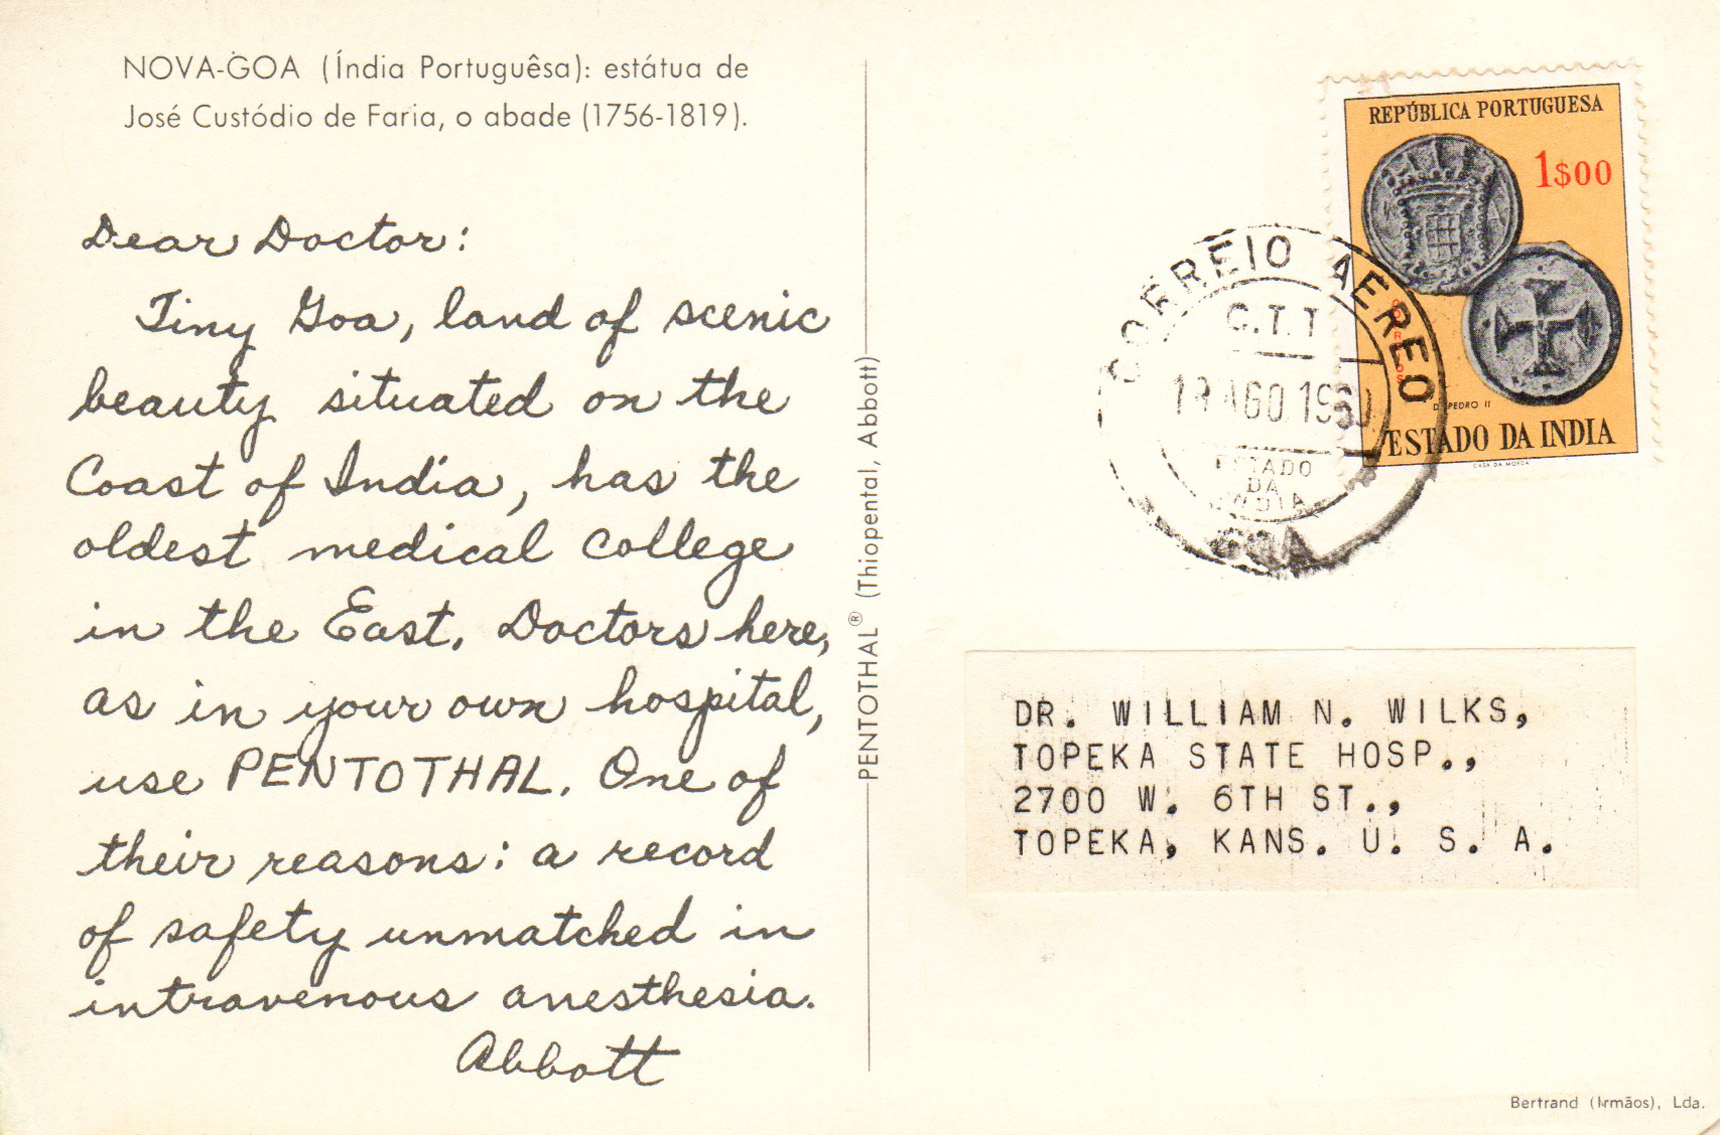 NOVA-GOA (Índia Portuguêsa): estátua de
José Custódio de Faria, o abade (1756-1819).
Dear Doctor:
Tiny Goa, land of scenic
beauty situated on the
Coast of India, has the
oldest medical college
in the East. Doctors here,
as in your own hospital,
use PENTOTHAL. One of
their reasons: a record
of safety unmatched in
intravenous anesthesia.
Abbott
PENTOTHAL® (Thiopental, Abbott)
REPÚBLICA PORTUGUESA
1$00
CORREIOS
D. PEDRO II
ESTADO DA INDIA
CASA DA MOEDA
CORREIO AEREO
C.T.T
AGO 1960
ESTADO
DA
INDIA
GOA
DR. WILLIAM N. WILKS,
TOPEKA STATE HOSP.,
2700 W. 6TH ST.,
TOPEKA, KANS. U. S. A.
Bertrand (Irmãos), Lda.